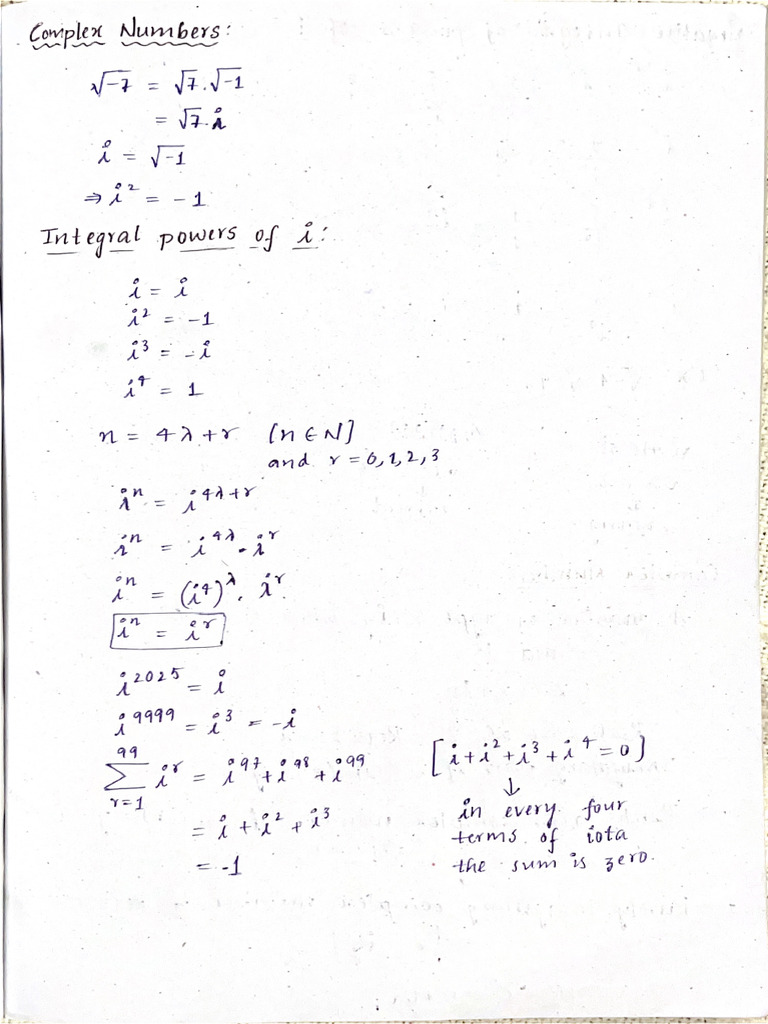 Complex Numbers:
√-7 = √7.√-1
= √7.i
i = √-1
⇒ i² = -1
Integral powers of i:
i = i
i² = -1
i³ = -i
i⁴ = 1
n = 4λ+r [n ∈ N]
and r = 0,1,2,3
iⁿ = i^(4λ+r)
iⁿ = i^(4λ) . i^r
iⁿ = (i⁴)^λ . i^r
iⁿ = i^r
i^2025 = i
i^9999 = i³ = -i
99
∑ i^r = i^97 + i^98 + i^99 [i+i²+i³+i⁴=0]
r=1
↓
= i + i² + i³ in every four
terms of iota
= -1 the sum is zero.